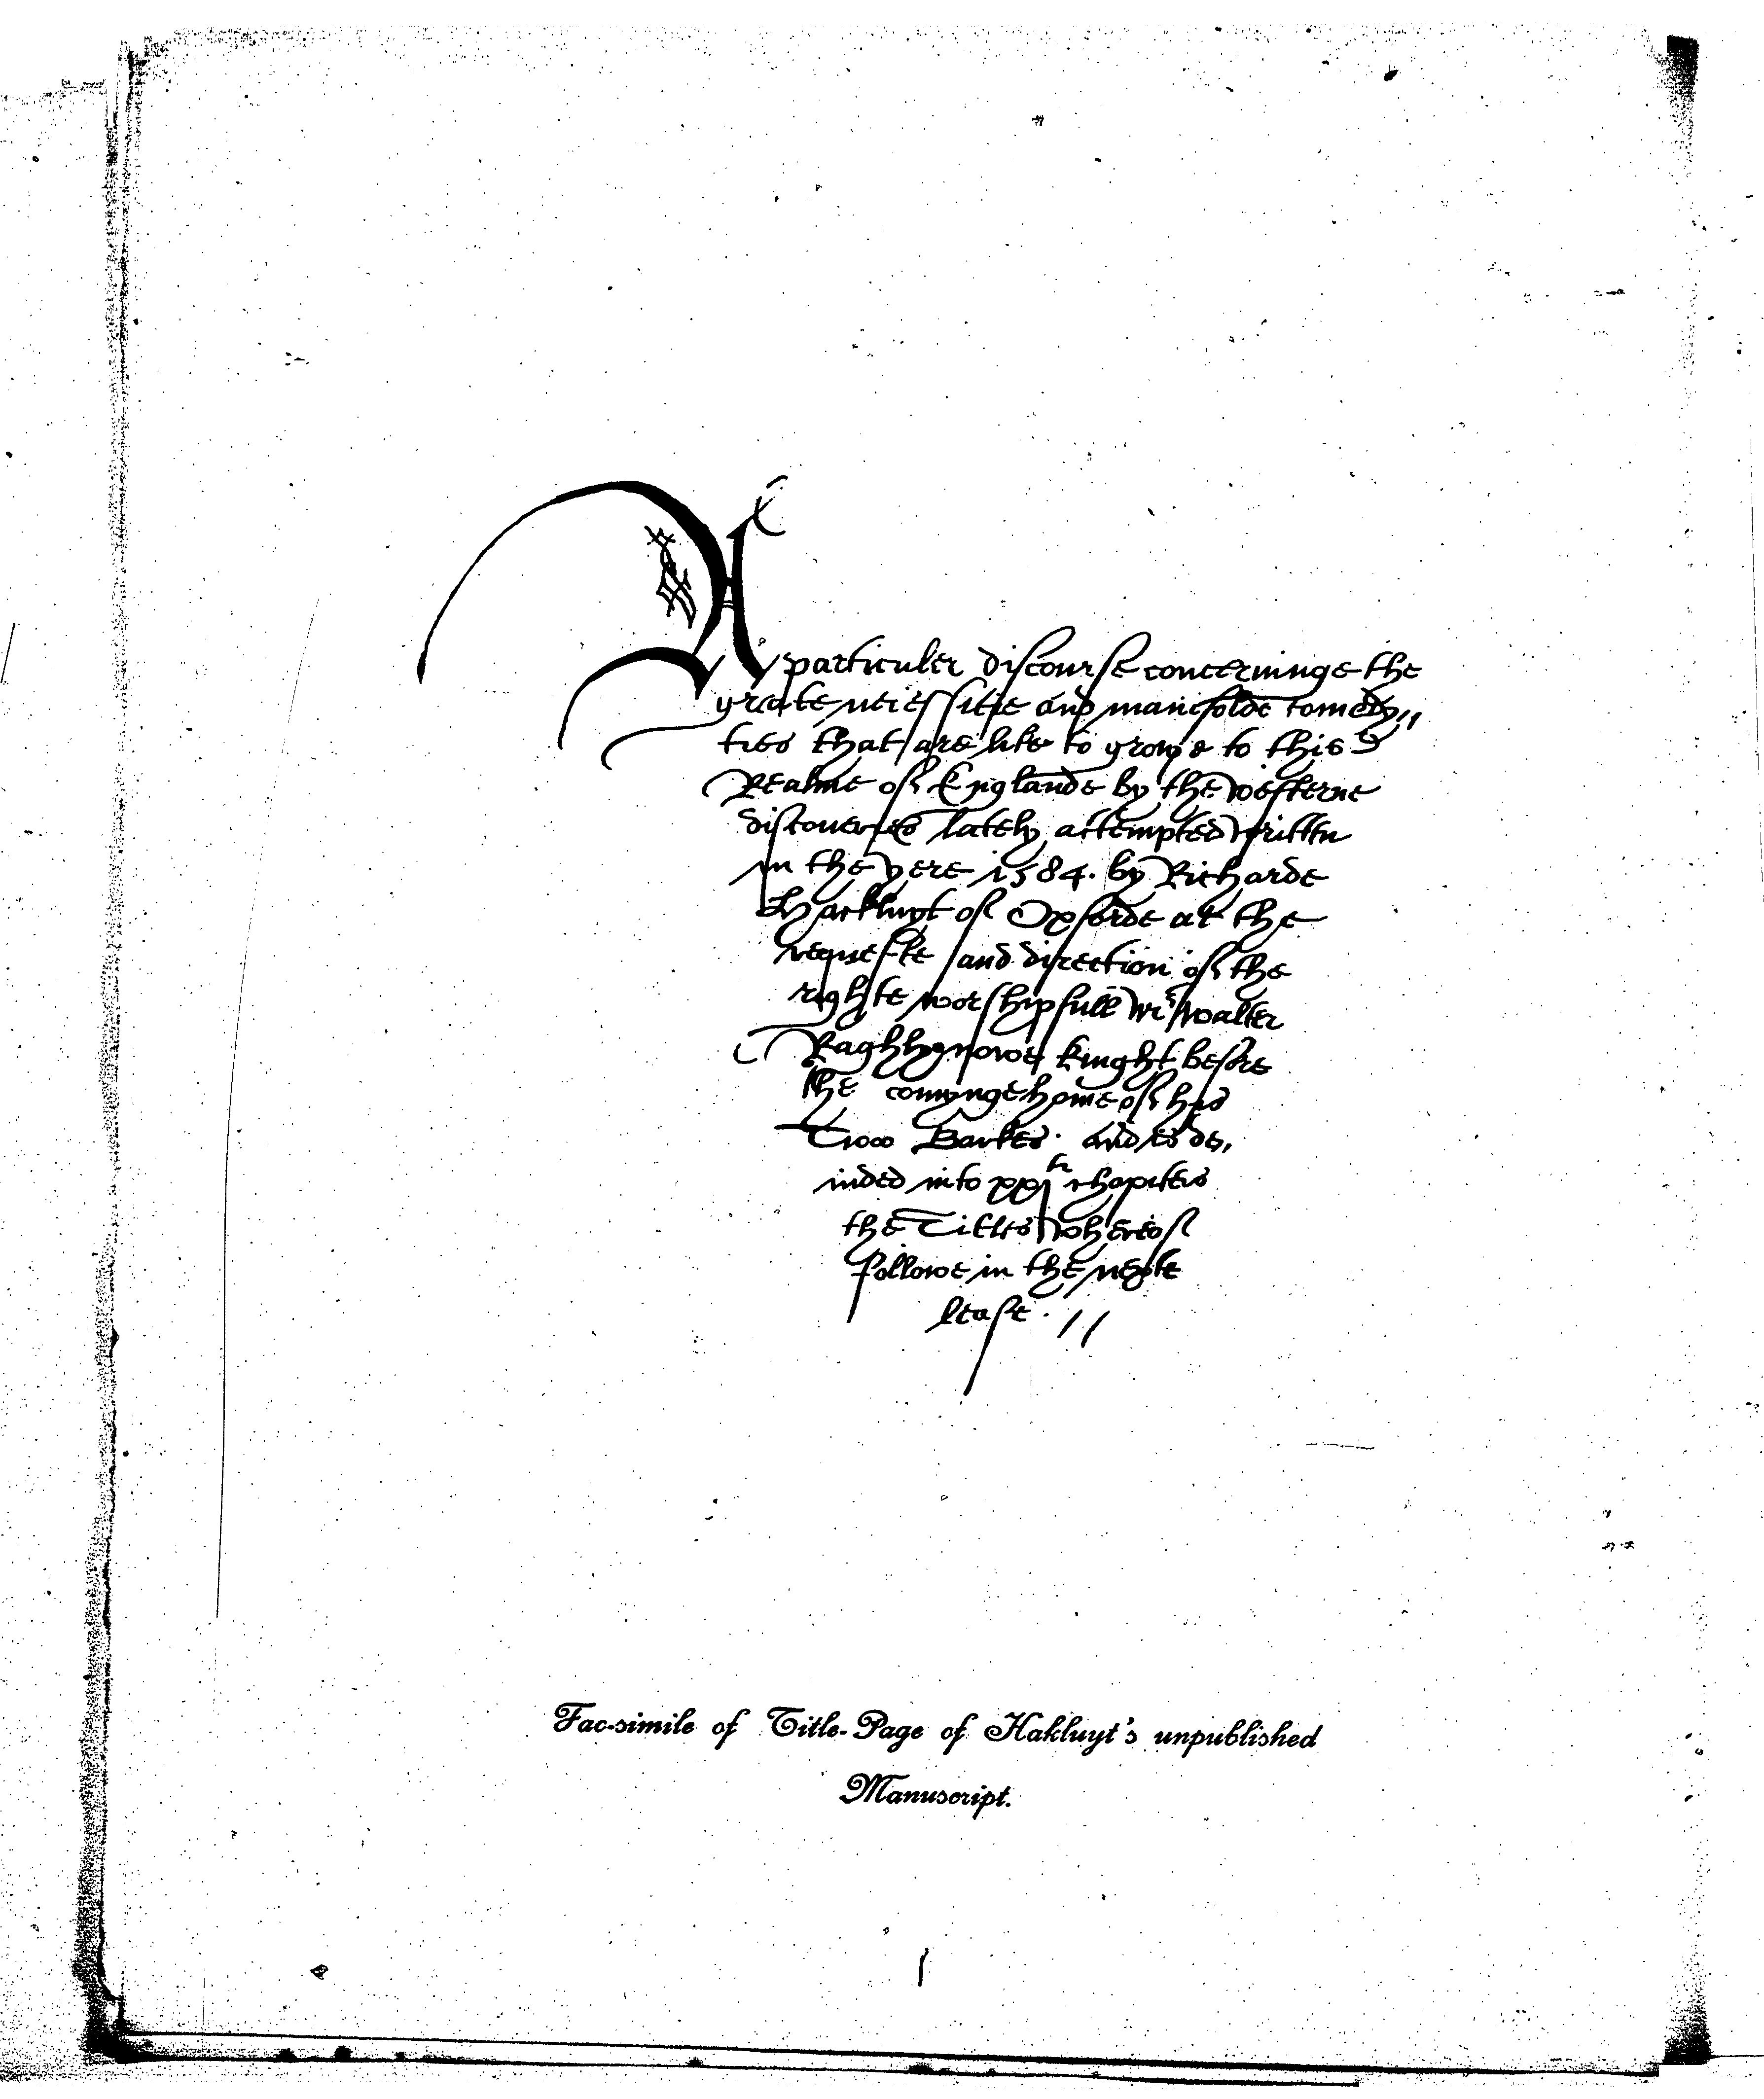 A particuler discourse concerninge the
greate necessitie and manifolde comody,,
ties that are like to growe to this
Realme of Englande by the Westerne
discoveries lately attempted Written
in the yere 1584. by Richarde
Hackluyt of Oxforde at the
requeste and direction of the
righte worshipfull Mr Walter
Raghly nowe Knight before
the comynge home of his
Twoo Barkes. and is de,
uided into xxj chapiters
the Titles whereof
followe in the nexte
leafe. //
Fac-simile of Title-Page of Hakluyt's unpublished
Manuscript.